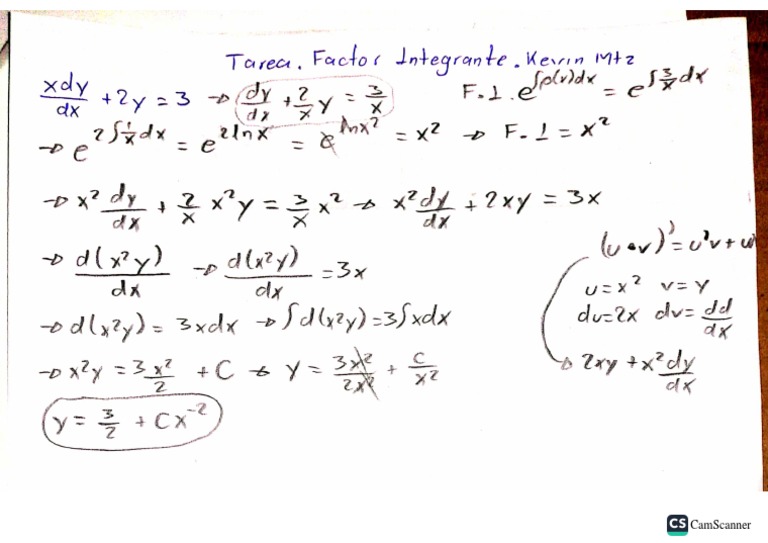 Tarea. Factor Integrante. Kevin Mtz
xdy/dx + 2y = 3 → dy/dx + 2/x y = 3/x   F.I. e^∫p(v)dx = e^∫3/x dx
→ e^2∫1/x dx = e^2lnx = e^lnx² = x² → F.I = x²
→ x² dy/dx + 2/x x²y = 3/x x² → x²dy/dx + 2xy = 3x
(u•v)' = u'v + u
→ d(x²y)/dx → d(x²y)/dx = 3x
u = x² v = y
→ d(x²y) = 3xdx → ∫d(x²y) = 3∫xdx
du = 2x dv = dd/dx
→ x²y = 3x²/2 + C → y = 3x²/2x² + C/x²
→ 2xy + x²dy/dx
y = 3/2 + Cx⁻²
CS CamScanner